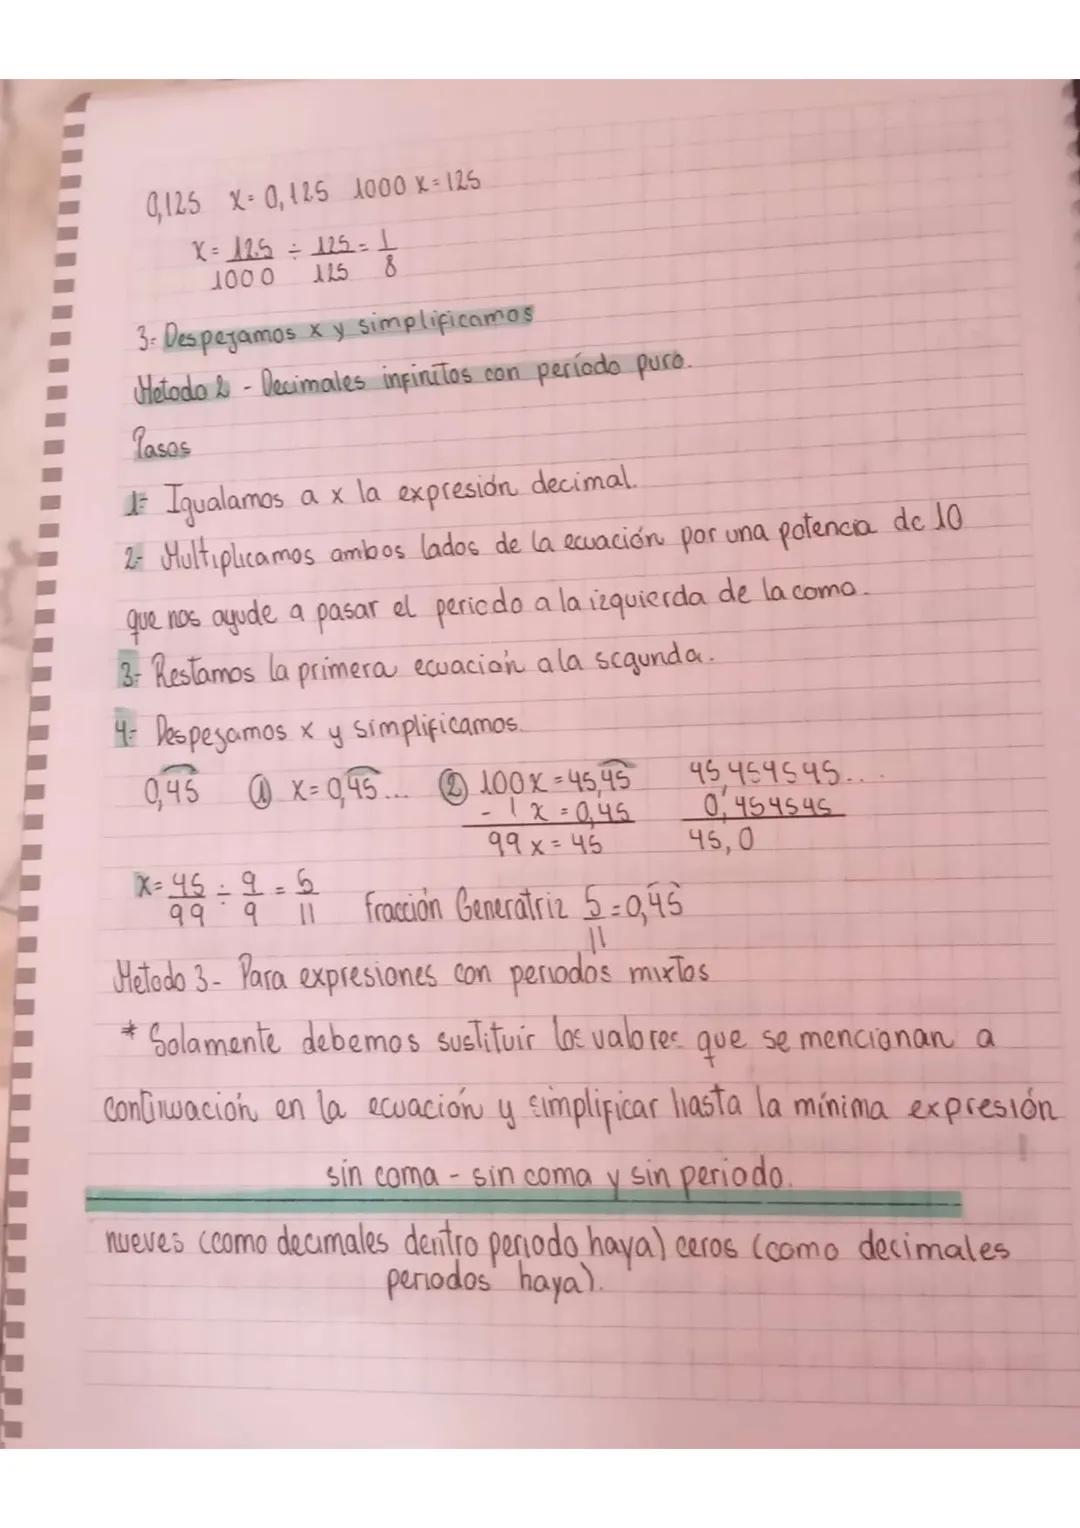 0,125 x= 0,125 1000 x=125
x= 125/1000 ÷ 125/125 = 1/8
3- Despejamos x y simplificamos
Metodo 2 - Decimales infinitos con período puro.
Pasos
1- Igualamos a x la expresión decimal.
2- Multiplicamos ambos lados de la ecuación por una potencia de 10
que nos ayude a pasar el periodo a la izquierda de la coma.
3- Restamos la primera ecuación a la segunda.
4- Despejamos x y simplificamos.
0,45 ① x= 0,45... ② 100x =45,45 45,454545...
- 1x =0,45 0,454545
99x= 45 45,0
x= 45/99 ÷ 9/9 = 5/11 fracción Generatriz 5/11 =0,45
Metodo 3- Para expresiones con periodos mixtos
* Solamente debemos sustituir los valores que se mencionan a
continuación en la ecuación y simplificar hasta la mínima expresión
sin coma - sin coma y sin periodo.
nueves (como decimales dentro periodo haya) ceros (como decimales
periodos haya).